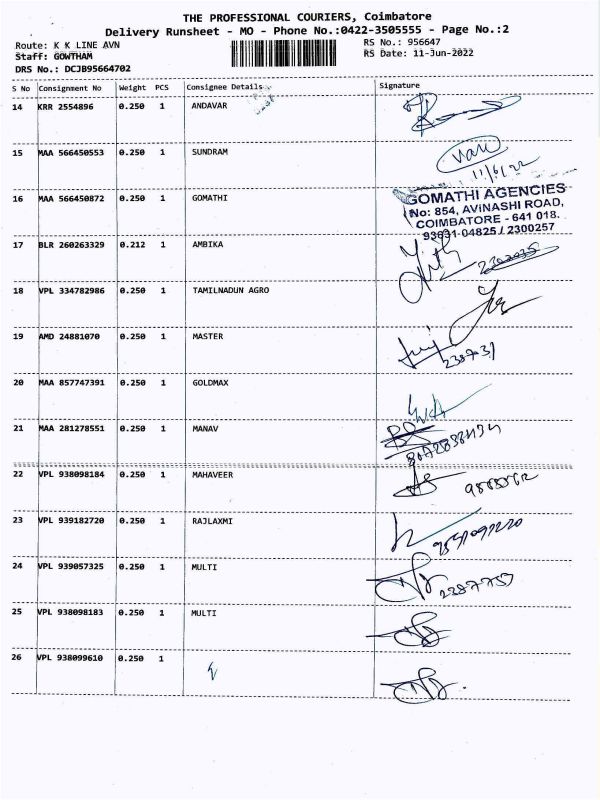 THE PROFESSIONAL COURIERS, Coimbatore
Delivery Runsheet - MO - Phone No.:0422-3505555 - Page No.:2
Route: K K LINE AVN
RS No.: 956647
Staff: GOWTHAM
RS Date: 11-Jun-2022
DRS No.: DCJB95664702
S No Consignment No Weight PCS Consignee Details Signature
14 KRR 2554896 0.250 1 ANDAVAR
15 MAA 566450553 0.250 1 SUNDRAM
11/6/22
16 MAA 566450872 0.250 1 GOMATHI
GOMATHI AGENCIES
No: 854, AVINASHI ROAD,
COIMBATORE - 641 018.
93631 04825 / 2300257
17 BLR 260263329 0.212 1 AMBIKA
18 VPL 334782986 0.250 1 TAMILNADUN AGRO
19 AMD 24881070 0.250 1 MASTER
20 MAA 857747391 0.250 1 GOLDMAX
21 MAA 281278551 0.250 1 MANAV
22 VPL 938098184 0.250 1 MAHAVEER
23 VPL 939182720 0.250 1 RAJLAXMI
24 VPL 939057325 0.250 1 MULTI
25 VPL 938098183 0.250 1 MULTI
26 VPL 938099610 0.250 1